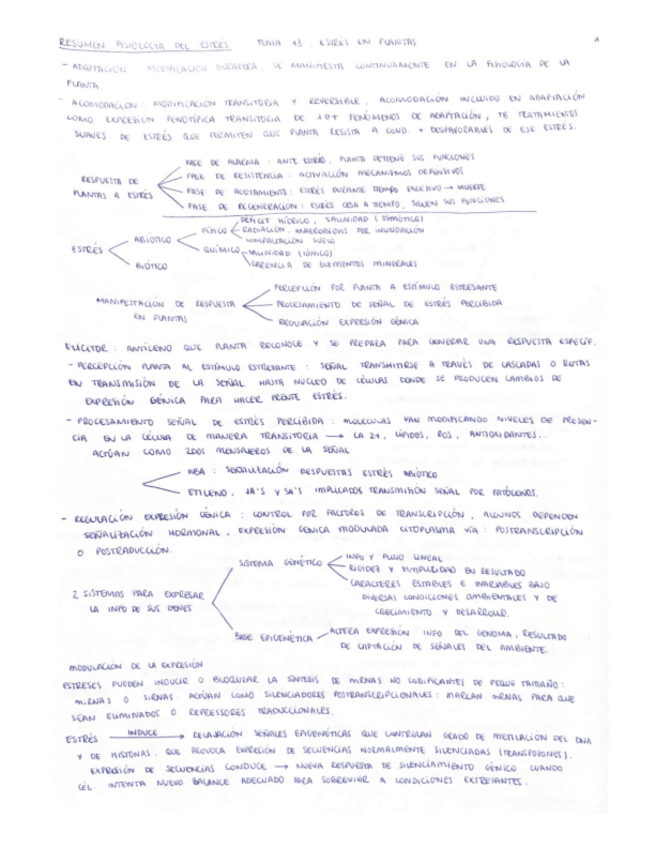 RESUMEN FISIOLOGÍA DEL ESTRÉS TEMA 13. ESTRÉS EN PLANTAS
- ADAPTACIÓN: MODIFICACIÓN DURADERA, SE MANIFIESTA CONTINUAMENTE EN LA FISIOLOGÍA DE LA
PLANTA.
- ACOMODACIÓN: MODIFICACIÓN TRANSITORIA Y REVERSIBLE, ACOMODACIÓN INCLUIDO EN ADAPTACIÓN
COMO EXPRESIÓN FENOTÍPICA TRANSITORIA DE 1 O + FENÓMENOS DE ADAPTACIÓN, TB TRATAMIENTOS
SUAVES DE ESTRÉS QUE PERMITEN QUE PLANTA RESISTA A COND. + DESFAVORABLES DE ESE ESTRÉS.
RESPUESTA DE
PLANTAS A ESTRÉS
FASE DE ALARMA: ANTE ESTRÉS, PLANTA DETIENE SUS FUNCIONES
FASE DE RESISTENCIA: ACTIVACIÓN MECANISMOS DEFENSIVOS
FASE DE AGOTAMIENTO: ESTRÉS DURANTE TIEMPO EXCESIVO → MUERTE
FASE DE REGENERACIÓN: ESTRÉS CESA A TIEMPO, SIGUEN SUS FUNCIONES
ESTRÉS
ABIÓTICO
FÍSICO
DÉFICIT HÍDRICO, SALINIDAD (OSMÓTICO)
RADIACIÓN, ANAEROBIOSIS POR INUNDACIÓN
COMPACTACIÓN SUELO
QUÍMICO
SALINIDAD (IÓNICO)
CARENCIA DE ELEMENTOS MINERALES
BIÓTICO
MANIFESTACIÓN DE RESPUESTA
EN PLANTAS
PERCEPCIÓN POR PLANTA A ESTÍMULO ESTRESANTE
PROCESAMIENTO DE SEÑAL DE ESTRÉS PERCIBIDA
REGULACIÓN EXPRESIÓN GÉNICA
ELICITOR: ANTÍGENO QUE PLANTA RECONOCE Y SE PREPARA PARA GENERAR UNA RESPUESTA ESPECÍF.
- PERCEPCIÓN PLANTA AL ESTÍMULO ESTRESANTE: SEÑAL TRANSMITIRSE A TRAVÉS DE CASCADAS O RUTAS
EN TRANSMISIÓN DE LA SEÑAL HASTA NÚCLEO DE CÉLULAS DONDE SE PRODUCEN CAMBIOS DE
EXPRESIÓN GÉNICA PARA HACER FRENTE ESTRÉS.
- PROCESAMIENTO SEÑAL DE ESTRÉS PERCIBIDA: MOLÉCULAS VAN MODIFICANDO NIVELES DE PRESEN-
CIA EN LA CÉLULA DE MANERA TRANSITORIA → CA 2+, LÍPIDOS, ROS, ANTIOXIDANTES...
ACTÚAN COMO 2DOS MENSAJEROS DE LA SEÑAL
ABA: SEÑALIZACIÓN RESPUESTAS ESTRÉS ABIÓTICO
ETILENO, JA'S Y SA'S IMPLICADOS TRANSMISIÓN SEÑAL POR PATÓGENOS.
- REGULACIÓN EXPRESIÓN GÉNICA: CONTROL POR FACTORES DE TRANSCRIPCIÓN, ALGUNOS DEPENDEN
SEÑALIZACIÓN HORMONAL, EXPRESIÓN GÉNICA MODULADA CITOPLASMA VÍA: POSTRANSCRIPCIÓN
O POSTRADUCCIÓN.
2 SISTEMAS PARA EXPRESAR
LA INFO DE SUS GENES
SISTEMA GENÉTICO
INFO Y FLUJO LINEAL
RIGIDEZ Y SIMPLICIDAD EN RESULTADO
CARACTERES ESTABLES E INVARIABLES BAJO
DIVERSAS CONDICIONES AMBIENTALES Y DE
CRECIMIENTO Y DESARROLLO.
BASE EPIGENÉTICA
ALTERA EXPRESIÓN INFO DEL GENOMA, RESULTADO
DE CAPTACIÓN DE SEÑALES DEL AMBIENTE.
MODULACIÓN DE LA EXPRESIÓN
ESTRESES PUEDEN INDUCIR O BLOQUEAR LA SÍNTESIS DE MRNAS NO CODIFICANTES DE PEQUE TAMAÑO:
MIRNAS O SIRNAS. ACTÚAN COMO SILENCIADORES POSTRANSCRIPCIONALES: MARCAN MRNAS PARA QUE
SEAN ELIMINADOS O REPRESSORES TRADUCCIONALES.
ESTRÉS INDUCE → RELAJACIÓN SEÑALES EPIGENÉTICAS QUE CONTROLAN GRADO DE METILACIÓN DEL DNA
Y DE HISTONAS, QUE PROVOCA EXPRESIÓN DE SECUENCIAS NORMALMENTE SILENCIADAS (TRANSPOSONES).
EXPRESIÓN DE SECUENCIAS CONDUCE → NUEVA RESPUESTA DE SILENCIAMIENTO GÉNICO CUANDO
CÉL. INTENTA NUEVO BALANCE ADECUADO PARA SOBREVIVIR A CONDICIONES EXTRESANTES.